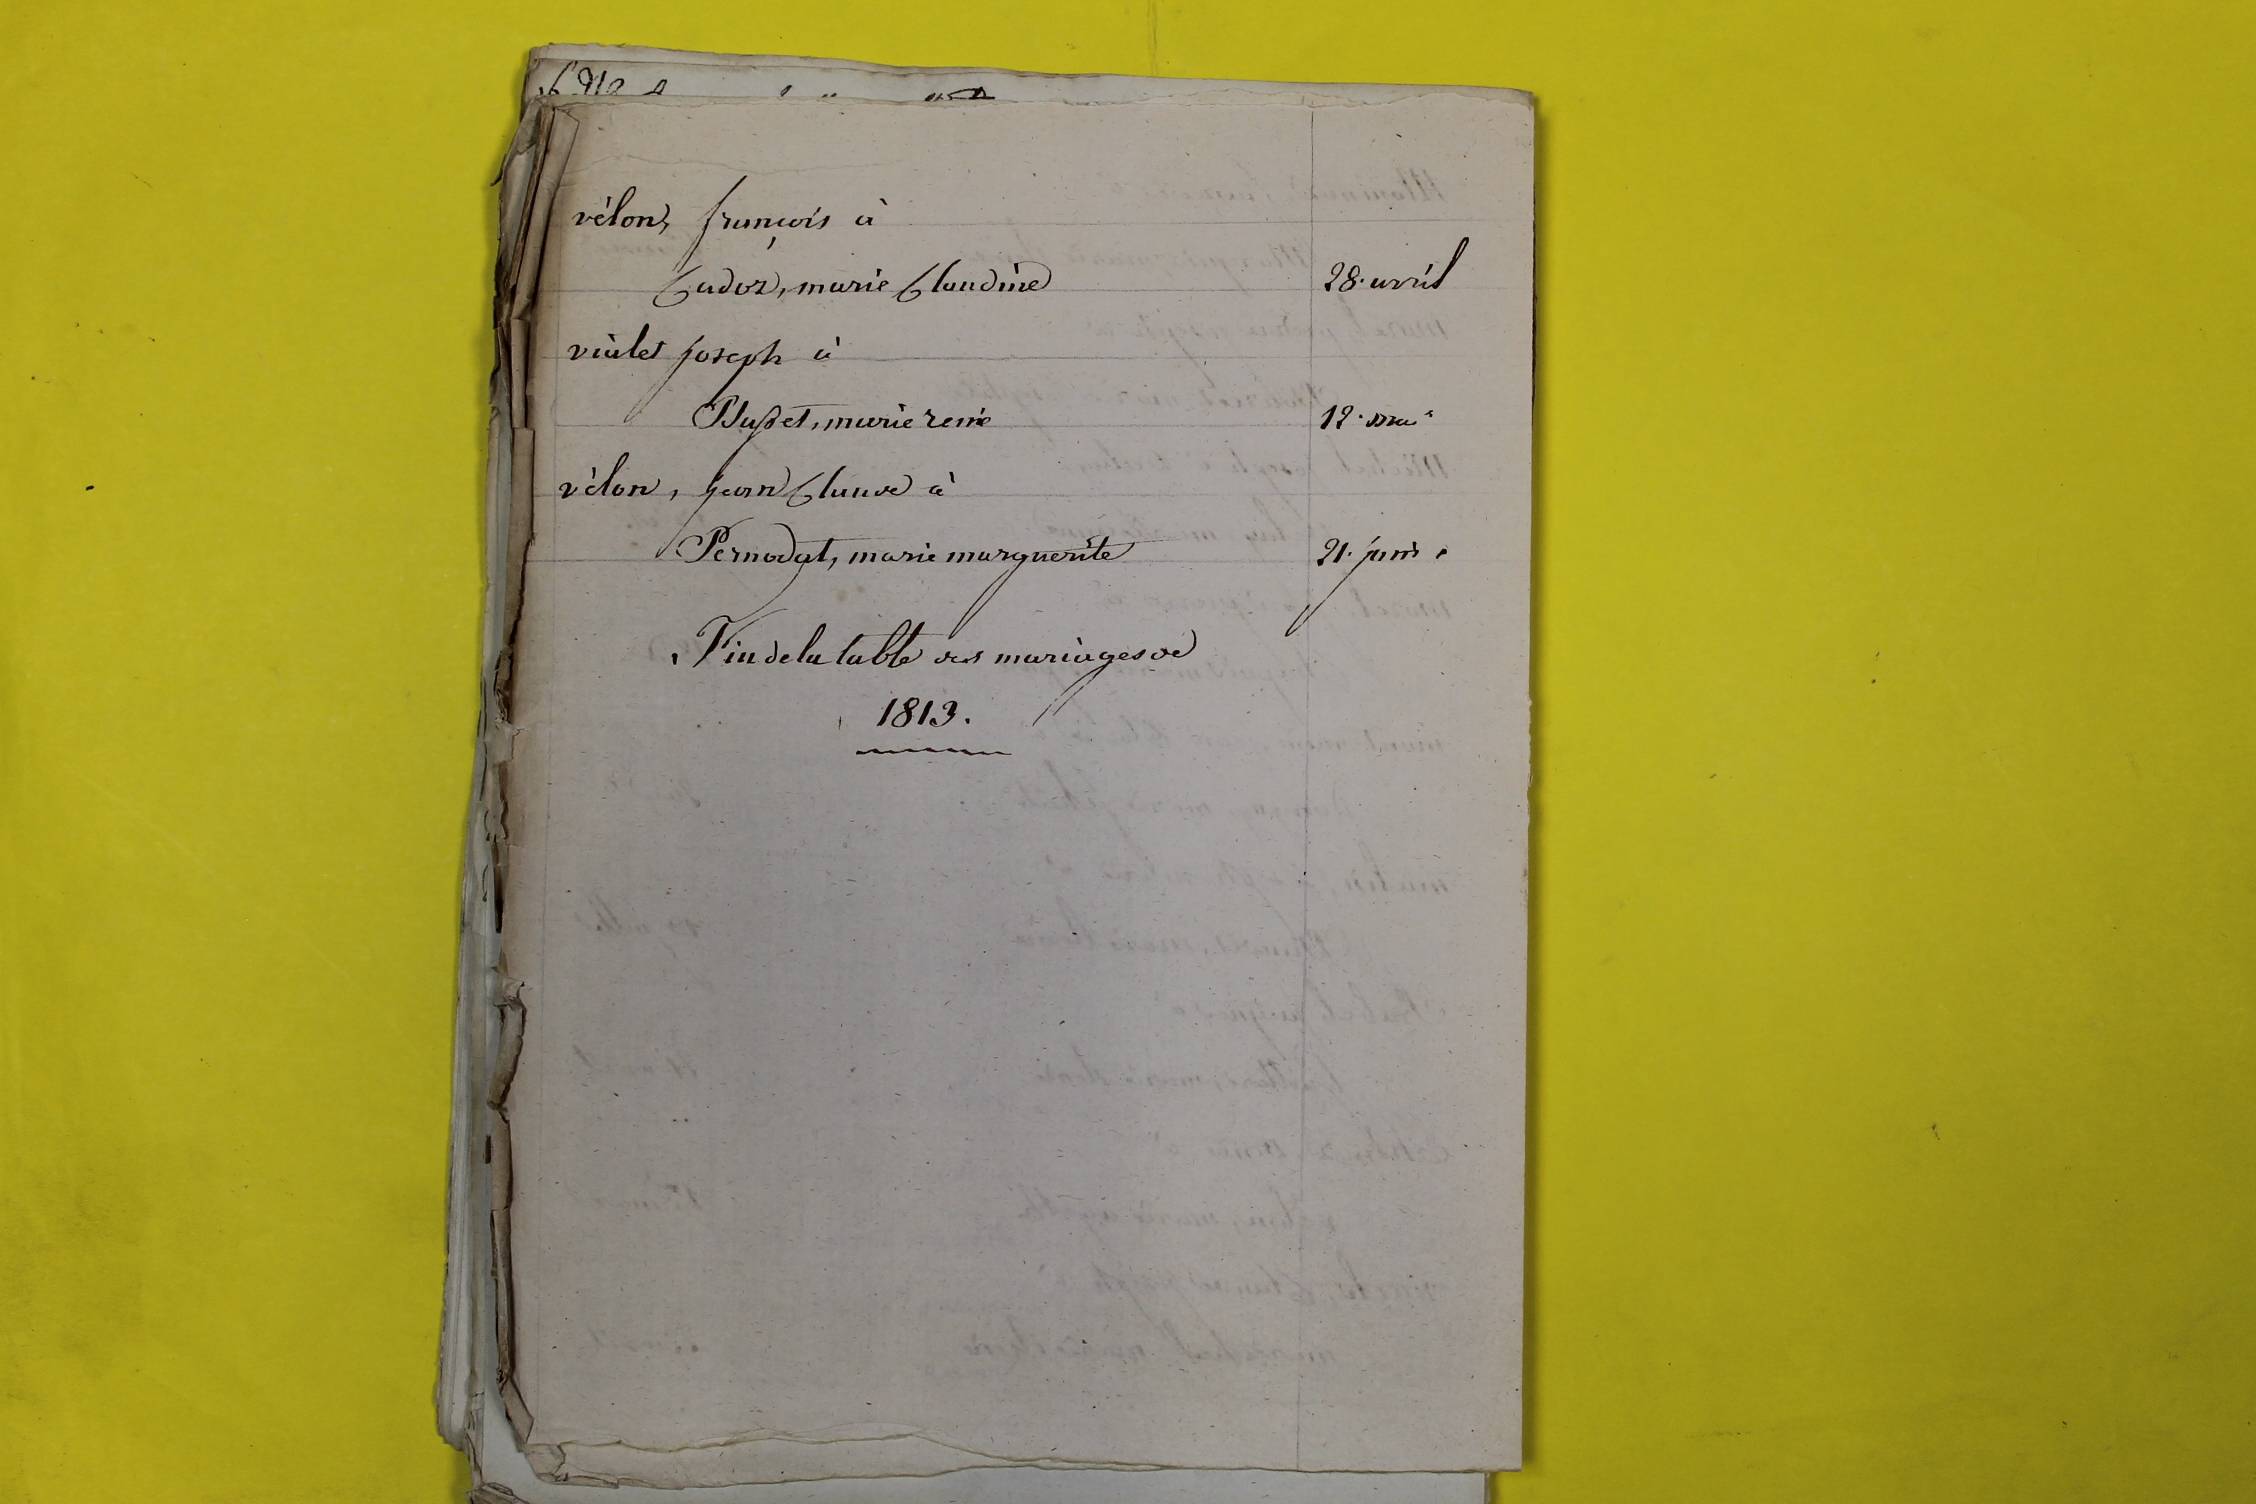 vélon, françois à
Cadoz, marie Claudine 28. avril
vialet joseph à
Busset, marie reine 12. mai
vélon, jean Claude à
Pernodat, marie marguerite 21. juin.
Fin de la table des mariages de
1813.